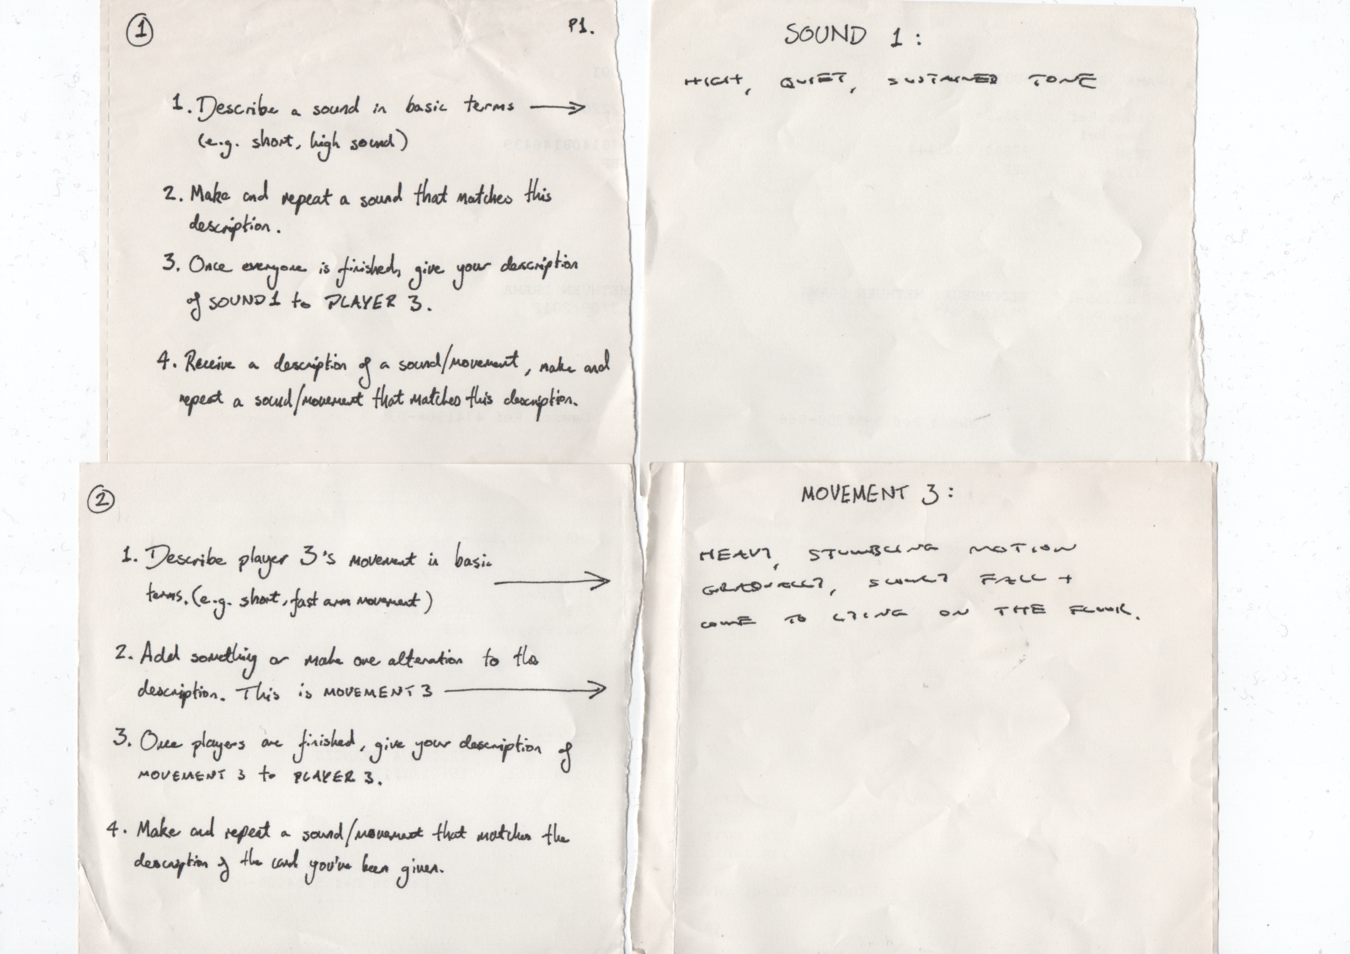 1 P1.
1. Describe a sound in basic terms
(e.g. short, high sound)
2. Make and repeat a sound that matches this
description.
3. Once everyone is finished, give your description
of SOUND1 to PLAYER 3.
4. Receive a description of a sound/movement, make and
repeat a sound/movement that matches this description.
SOUND 1:
HIGH, QUIET, SUSTAINED TONE
2
1. Describe player 3's movement in basic
terms. (e.g. short, fast arm movement)
2. Add something or make one alteration to the
description. This is MOVEMENT 3
3. Once players are finished, give your description of
MOVEMENT 3 to PLAYER 3.
4. Make and repeat a sound/movement that matches the
description of the card you've been given.
MOVEMENT 3:
HEAVY, STUMBLING MOTION
GRADUALLY, SLOWLY FALL +
COME TO LYING ON THE FLOOR.